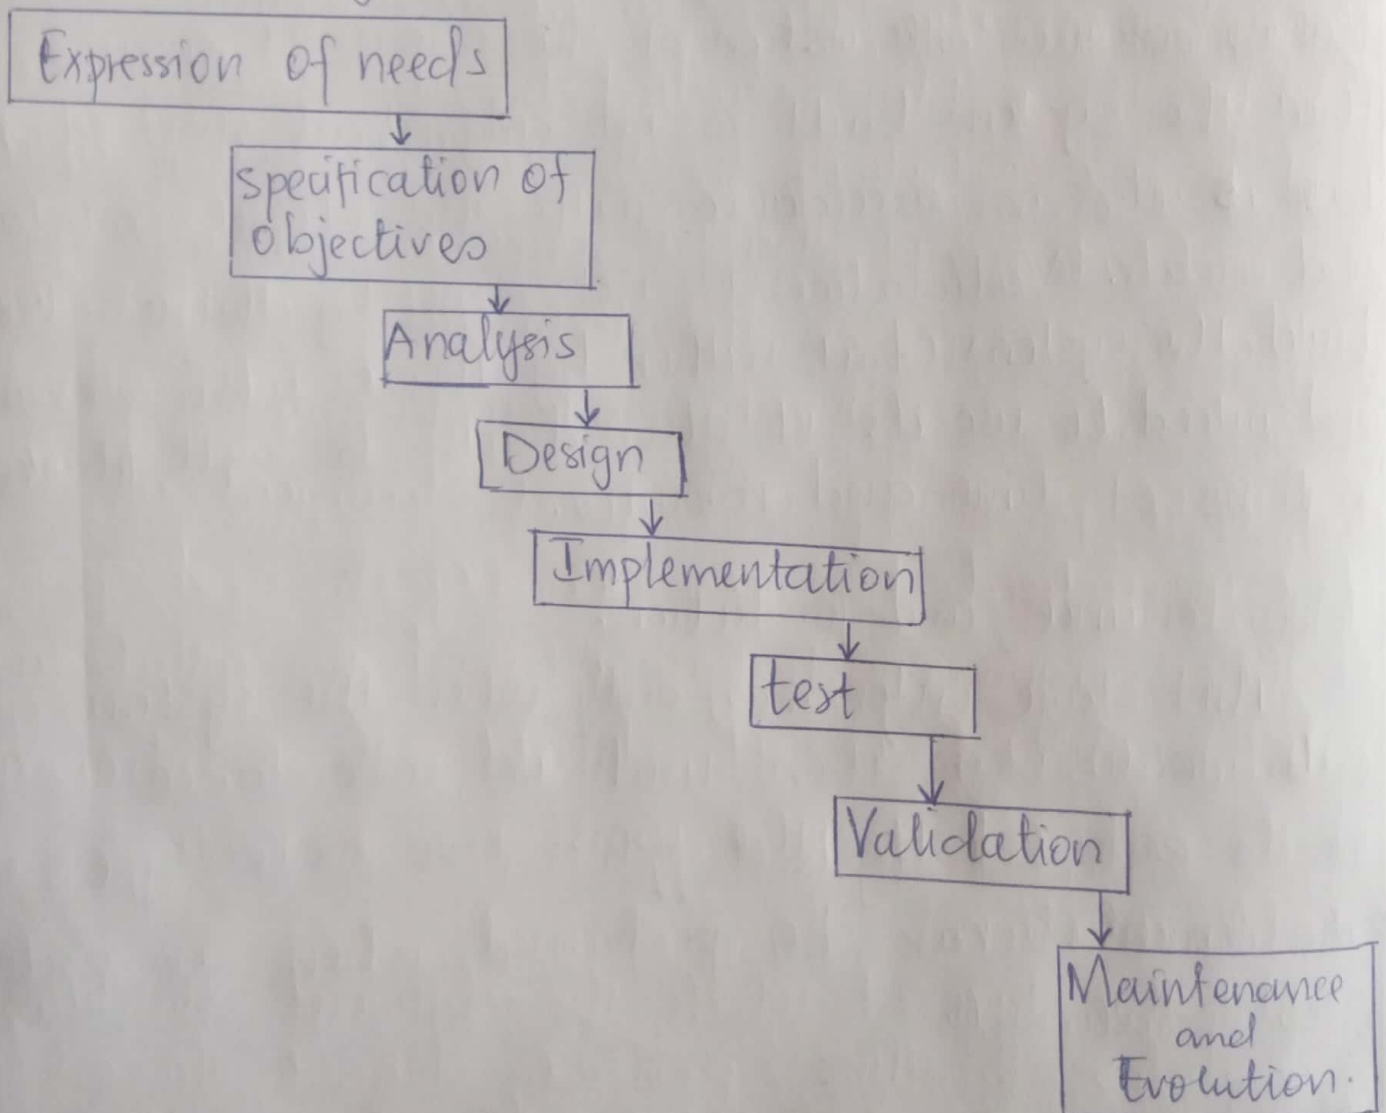 Expression of needs
specification of
objectives
Analysis
Design
Implementation
test
Validation
Maintenance
and
Evolution.